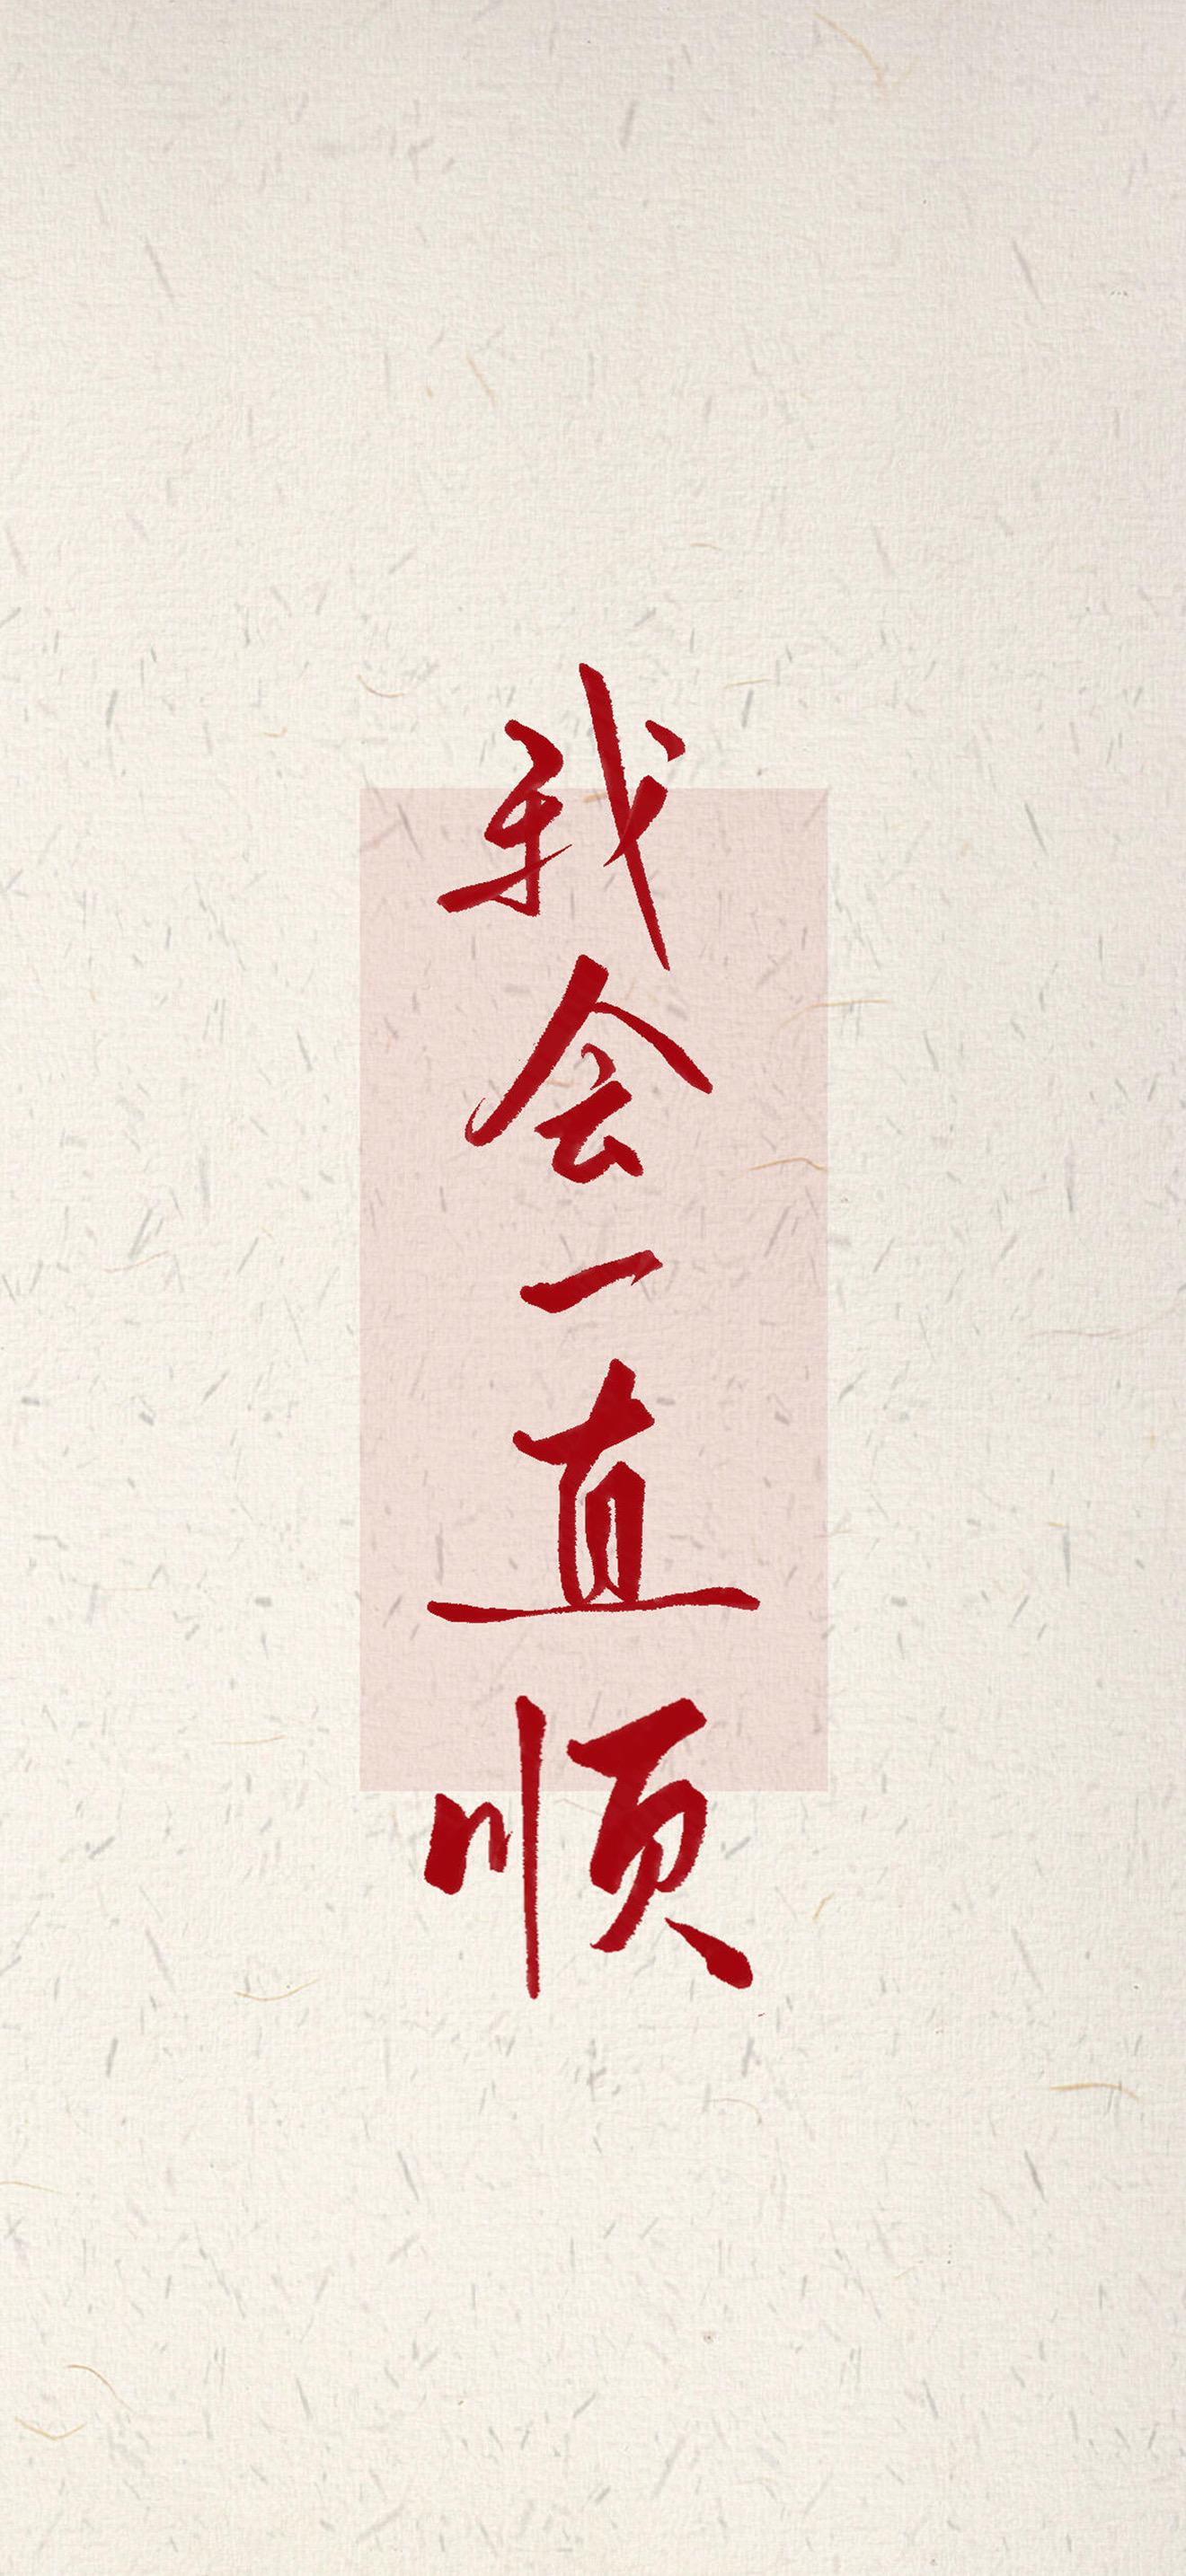 我会一直顺